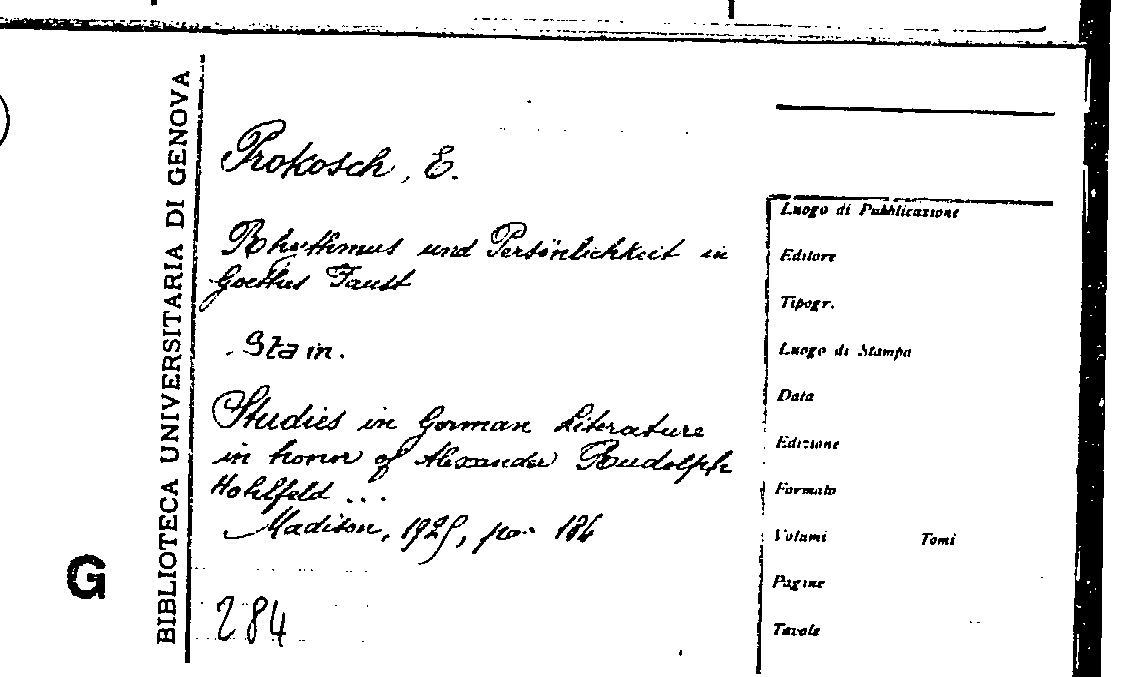 BIBLIOTECA UNIVERSITARIA DI GENOVA
G
Prokosch, E.
Rhythmus und Persönlichkeit in
Goethes Faust
Sta in.
Studies in German Literature
in honor of Alexander Rudolph
Hohlfeld ...
Madison, 1925, pp. 184
284
Luogo di Pubblicazione
Editore
Tipogr.
Luogo di Stampa
Data
Edizione
Formato
Volumi Tomi
Pagine
Tavole